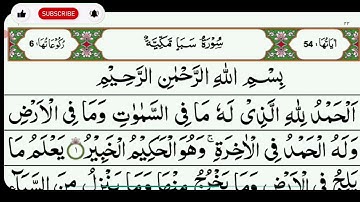 SUBSCRIBE
رُكُوْعَاتُهَا: 6 سُوْرَةُ سَبَاٍ مَّكِّيَّةٌ اٰيَاتُهَا: 54
بِسْمِ اللّٰهِ الرَّحْمٰنِ الرَّحِيْمِ
اَلْحَمْدُ لِلّٰهِ الَّذِیْ لَهٗ مَا فِی السَّمٰوٰتِ وَمَا فِی الْاَرْضِ
وَلَهُ الْحَمْدُ فِی الْاٰخِرَةِ ؕ وَهُوَ الْحَكِیْمُ الْخَبِیْرُ ۝۱ یَعْلَمُ مَا
یَلِجُ فِی الْاَرْضِ وَمَا یَخْرُجُ مِنْهَا وَمَا یَنْزِلُ مِنَ السَّمَآءِ